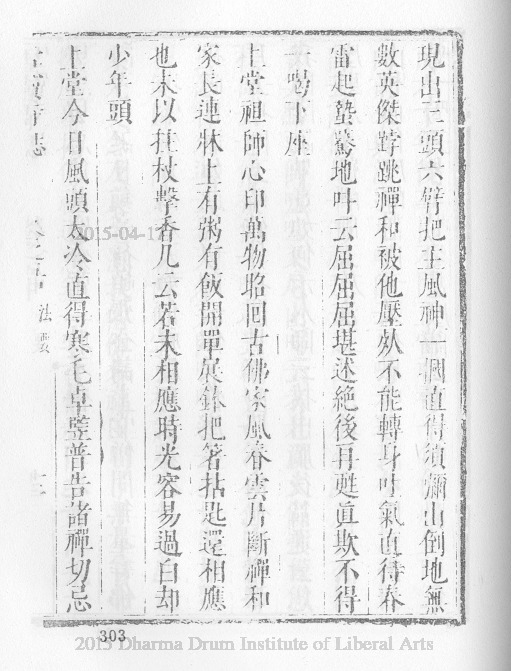 現出三頭六臂把主風神一摑直得須彌山倒地無
數英傑踍跳禪和被他壓狀不能轉身吐氣直待春
雷起蟄驀地叫云屈屈屈堪述絕後再甦眞欺不得
一喝下座
上堂祖師心印萬物昭回古佛家風春雲片斷禪和
家長連牀上有粥有飯開單展鉢把筯拈匙還相應
也未以拄杖擊香几云若未相應時光容易過白却
少年頭
上堂今日風頭太冷直得寒毛卓豎普告諸禪切忌
寺志 卷之五 法要
2015-04-17
303
2015 Dharma Drum Institute of Liberal Arts